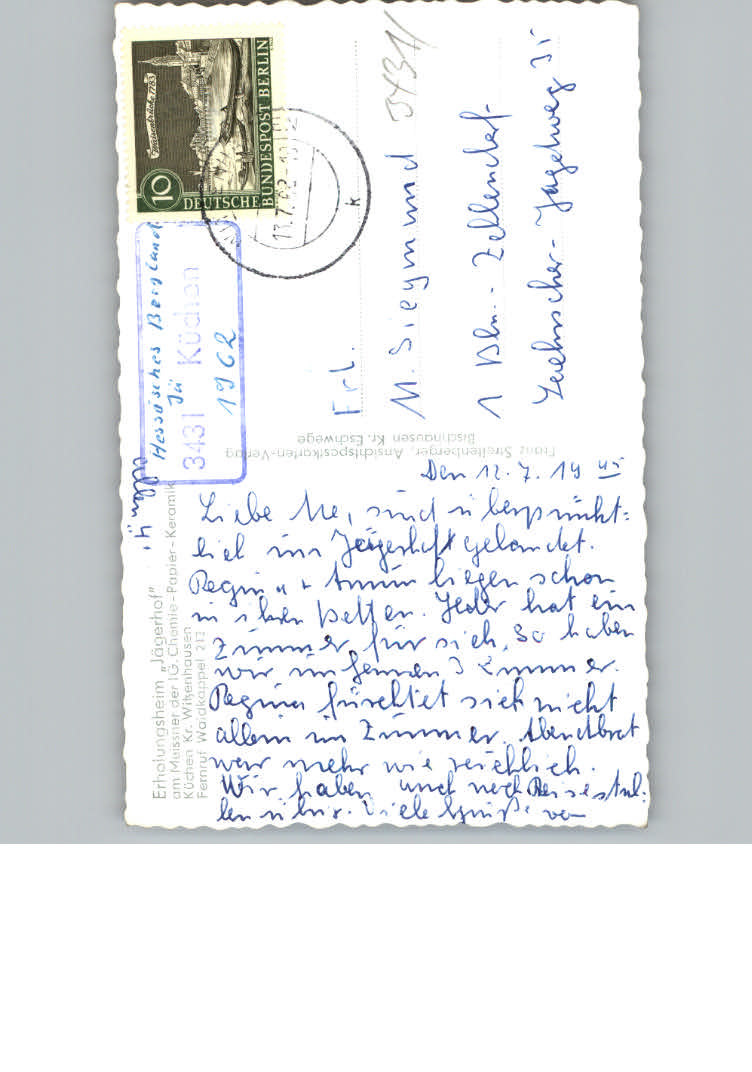 Erholungsheim „Jägerhof"
am Meissner der IG. Chemie-Papier-Keramik
Küchen Kr. Witzenhausen
Fernruf Waldkappel 213
Den 12. 7. 19 45
Liebe Me, sind überpünkt=
lich im Jägerhof gelandet.
Regina + Armin liegen schon
in ihren Betten. Jeder hat ein
Zimmer für sich, so haben
wir im ganzen 3 Zimmer.
Regina fürchtet sich nicht
allein im Zimmer. Abendbrot
war mehr wie reichlich.
Wir haben auch noch Reisestul=
len über. Viele Grüße von
allen 4.
Franz Streitenberger, Ansichtspostkarten-Verlag
Bischhausen Kr. Eschwege
Hessisches Bergland
Jü
3431 Küchen
1962
Gertraudenbrücke 1783
10
DEUTSCHE BUNDESPOST BERLIN
13.7.62
k
3431
Frl.
M. Siegmund
1 Bln. - Zehlendorf
Jagdweg 35